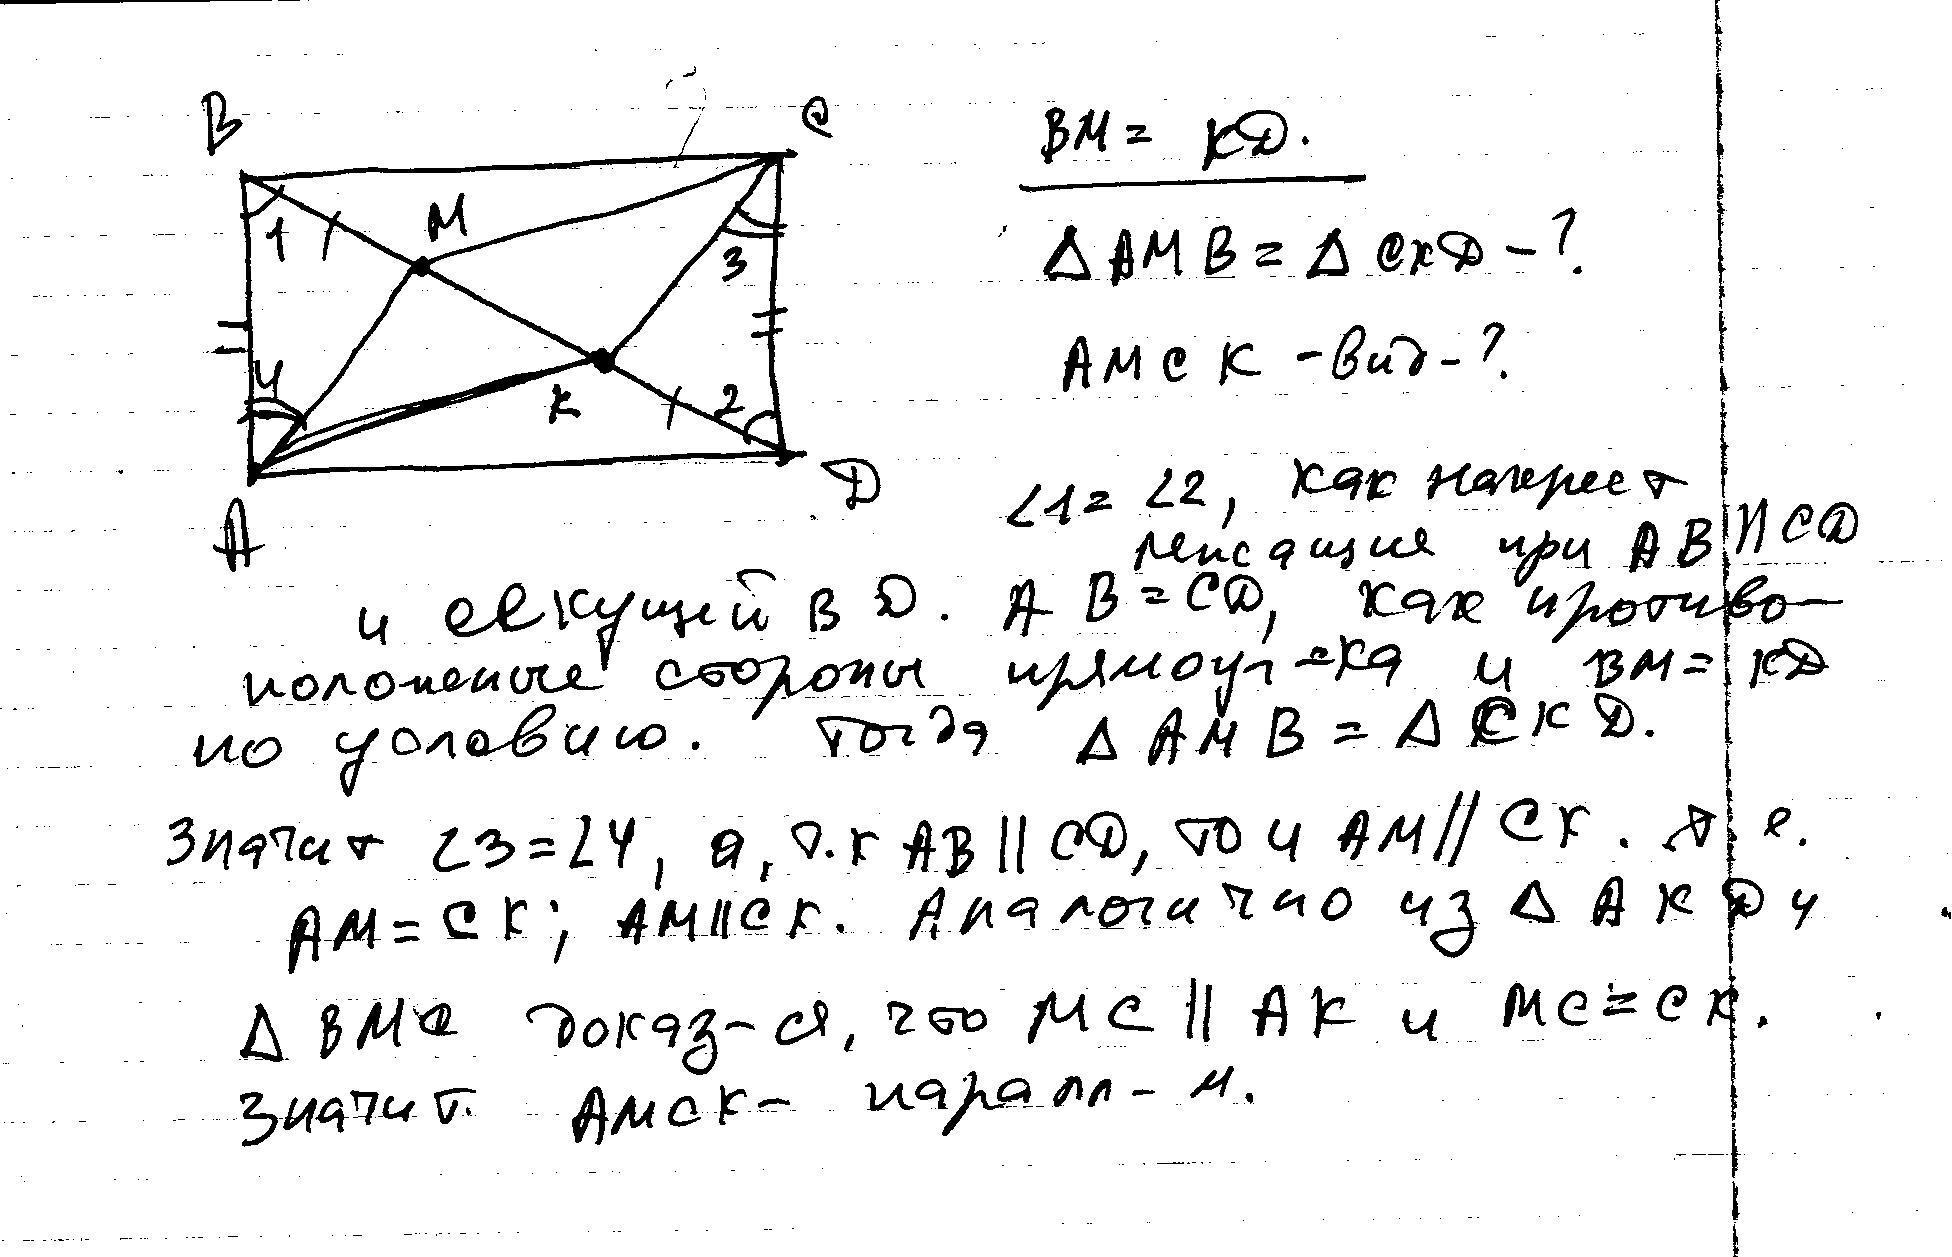 B
C
M
1
3
4
K
2
A
D
BM = KD.
Δ AMB = Δ CKD - ?
AMCK - вид - ?
∠1 = ∠2, как накрест
лежащие при AB || CD
и секущей BD. AB = CD, как противо-
положные стороны прямоуг-ка и BM = KD
по условию. Тогда Δ AMB = Δ CKD.
Значит ∠3 = ∠4, а, т.к AB || CD, то и AM // CK. т.е.
AM = CK; AM || CK. Аналогично из Δ AKD и
Δ BMC доказ-ся, что MC || AK и MC = CK.
Значит. AMCK - паралл-м.